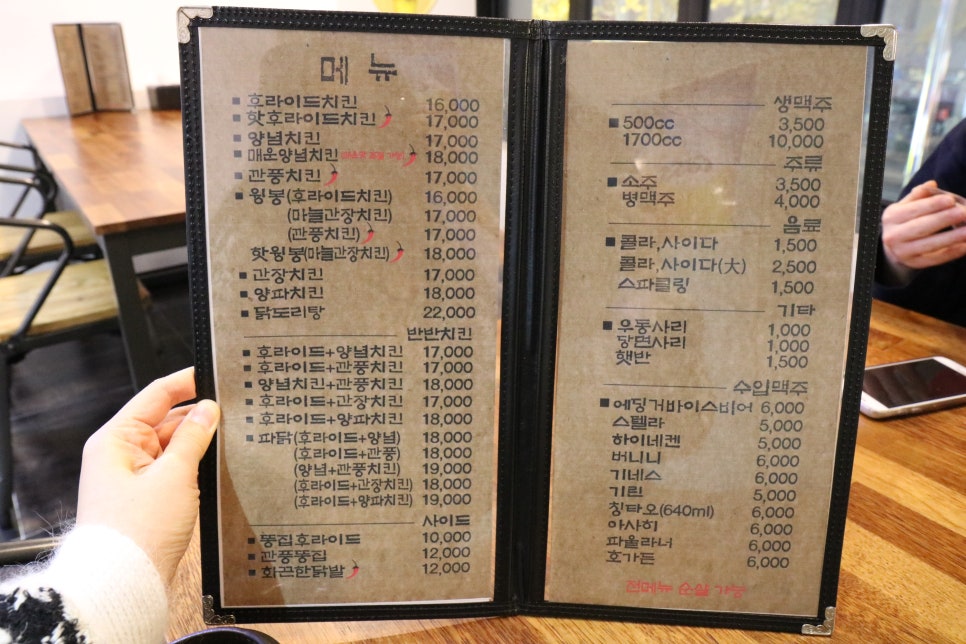 메뉴
■ 후라이드치킨 16,000
■ 핫후라이드치킨 17,000
■ 양념치킨 17,000
■ 매운양념치킨 18,000
■ 관풍치킨 17,000
■ 윙봉(후라이드치킨) 16,000
(마늘간장치킨) 17,000
(관풍치킨) 17,000
핫윙봉(마늘간장치킨) 18,000
■ 간장치킨 17,000
■ 양파치킨 18,000
■ 닭도리탕 22,000
반반치킨
■ 후라이드+양념치킨 17,000
■ 후라이드+관풍치킨 17,000
■ 양념치킨+관풍치킨 18,000
■ 후라이드+간장치킨 17,000
■ 후라이드+양파치킨 18,000
■ 파닭(후라이드+양념) 18,000
(후라이드+관풍) 18,000
(양념+관풍치킨) 19,000
(후라이드+간장치킨) 18,000
(후라이드+양파치킨) 19,000
사이드
■ 똥집후라이드 10,000
■ 관풍똥집 12,000
■ 화끈한닭발 12,000
생맥주
■ 500cc 3,500
1700cc 10,000
주류
■ 소주 3,500
병맥주 4,000
음료
■ 콜라,사이다 1,500
콜라,사이다(大) 2,500
스파클링 1,500
기타
■ 우동사리 1,000
당면사리 1,000
햇반 1,500
수입맥주
■ 에딩거바이스비어 6,000
스텔라 5,000
하이네켄 5,000
버니니 6,000
기네스 6,000
기린 5,000
칭타오(640ml) 6,000
아사히 6,000
파울라너 6,000
호가든 6,000
전메뉴 순살 가능